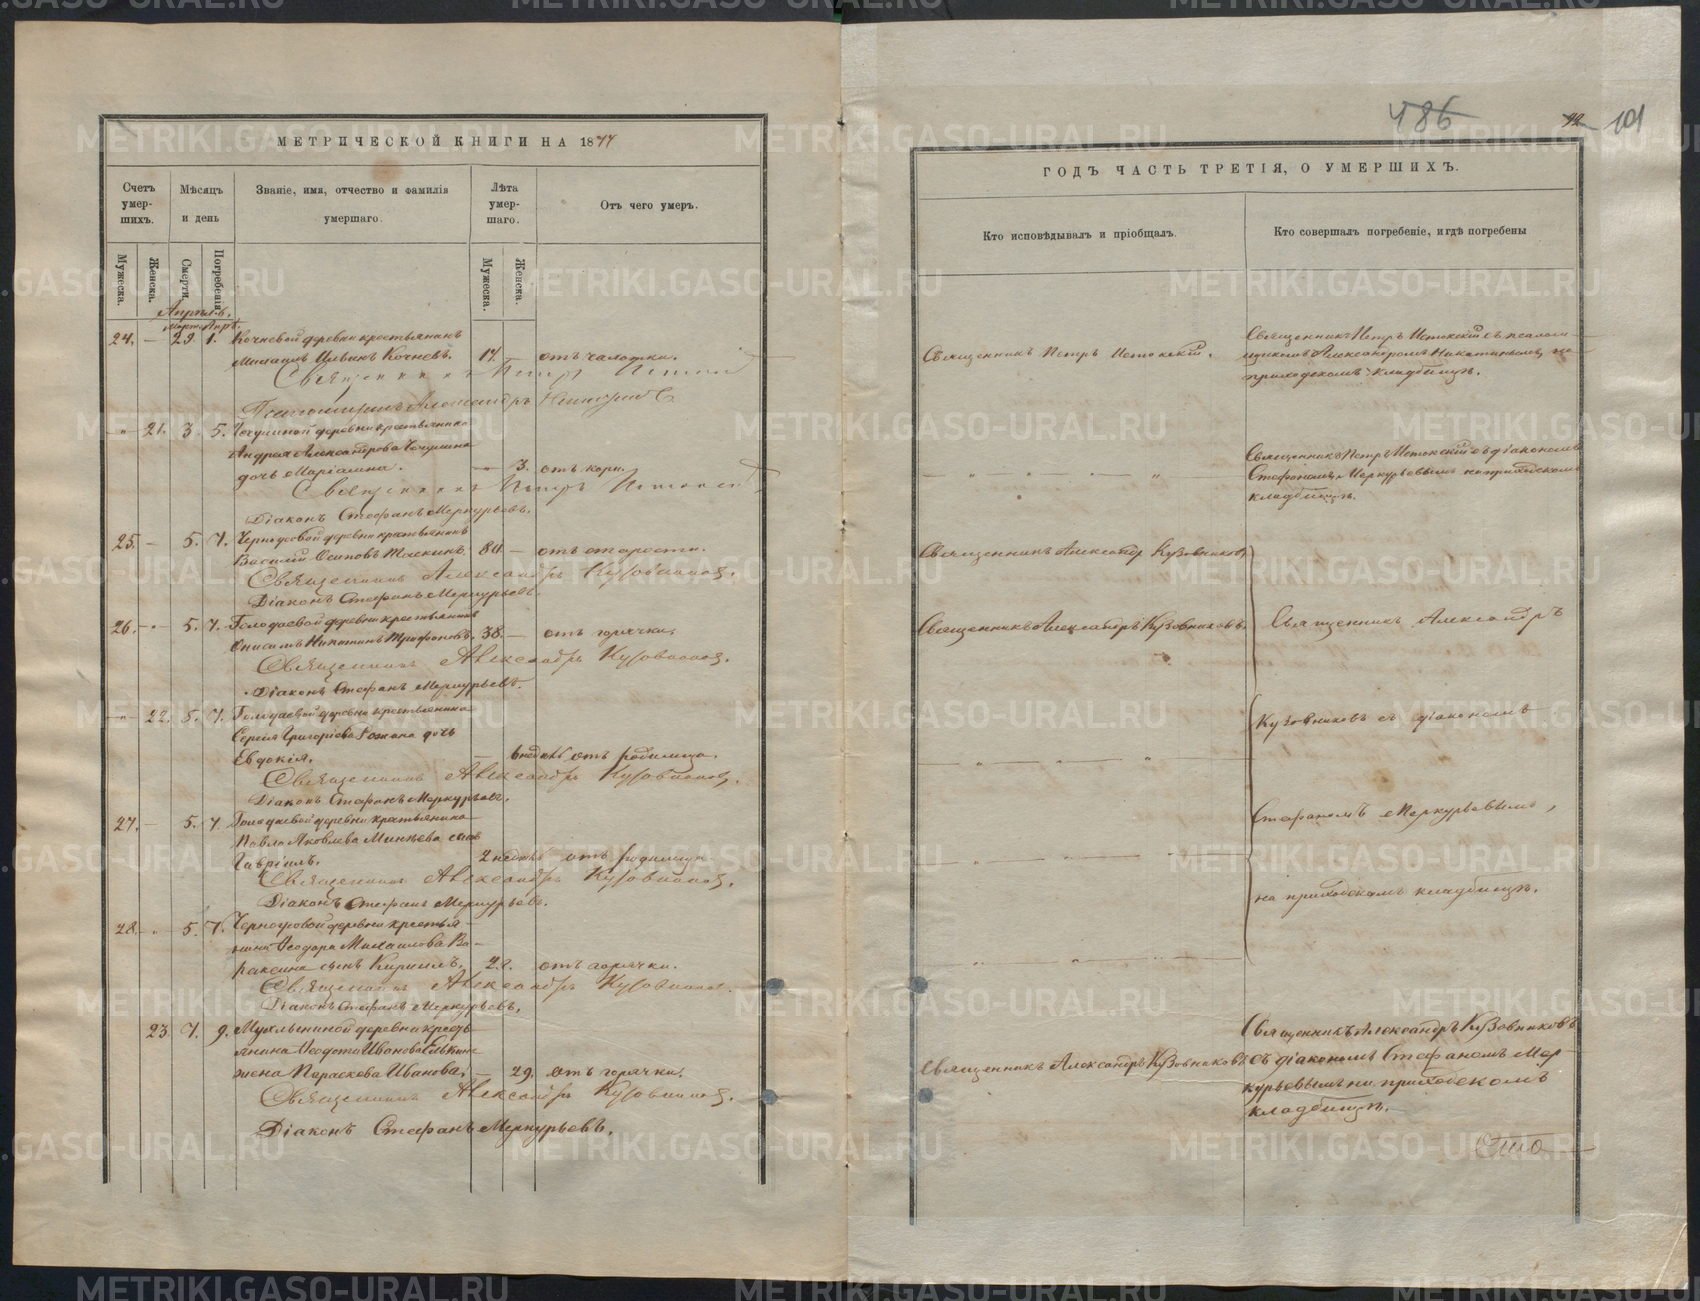 МЕТРИЧЕСКОЙ КНИГИ НА 1877
Счетъ умер-шихъ.
Мѣсяцъ и день
Званіе, имя, отчество и фамилія умершаго.
Лѣта умер-шаго.
Отъ чего умеръ.
Мужеска.
Женска.
Смерти.
Погребенія.
Мужеска.
Женска.
Апрѣль.
Марта Апр.
24. — 29. 1. Кочневой деревни крестьянинъ
Михаилъ Кочневъ. 17. — отъ чахотки.
Священникъ Петръ
Псаломщикъ Александръ Никитинъ
" 21. 3. 5. деревни крестьянина
Андрея Александрова
дочь Маріамна. — 3. отъ кори.
Священникъ Петръ
Діаконъ Стефанъ Меркурьевъ.
25. — 5. 7. деревни крестьянинъ
Василій Осиповъ Таскинъ. 80. — отъ старости.
Священникъ Александръ Кузовниковъ.
Діаконъ Стефанъ Меркурьевъ.
26. — 5. 7. Голодаевой деревни крестьянинъ
Онисимъ Никитинъ Трофимовъ. 38. — отъ горячки.
Священникъ Александръ Кузовниковъ.
Діаконъ Стефанъ Меркурьевъ.
— 22. 5. 7. Голодаевой деревни крестьянина
Сергія Григорьева дочь
Евдокія. — 6 недѣль отъ родимца.
Священникъ Александръ Кузовниковъ.
Діаконъ Стефанъ Меркурьевъ.
27. — 5. 7. Голодаевой деревни крестьянина
Павла Яковлева Минѣева сынъ
Гавріилъ. 2 недѣль отъ родимца
Священникъ Александръ Кузовниковъ.
Діаконъ Стефанъ Меркурьевъ.
28. " 5. 7. деревни крестья-
нина Ѳеодора Михаилова Ва-
ракина сынъ Кириллъ. 2 г. отъ горячки.
Священникъ Александръ Кузовниковъ.
Діаконъ Стефанъ Меркурьевъ.
23. 7. 9. деревни кресть-
янина Ѳеодота Иванова Елькина
жена Параскева Иванова. — 29. отъ горячки.
Священникъ Александръ Кузовниковъ.
Діаконъ Стефанъ Меркурьевъ.
486
101
ГОДЪ ЧАСТЬ ТРЕТІЯ, О УМЕРШИХЪ.
Кто исповѣдывалъ и пріобщалъ.
Кто совершалъ погребеніе, и гдѣ погребены
Священникъ Петръ
Священникъ Петръ съ псалом-
щикомъ Александромъ Никитинымъ, на
приходскомъ кладбищѣ.
Священникъ Петръ съ діакономъ
Стефаномъ Меркурьевымъ на приходскомъ
кладбищѣ.
Священникъ Александръ Кузовниковъ
Священникъ Александръ Кузовниковъ.
Священникъ Александръ
Кузовниковъ съ діакономъ
Стефаномъ Меркурьевымъ,
на приходскомъ кладбищѣ.
Священникъ Александръ Кузовниковъ
Священникъ Александръ Кузовниковъ
съ діакономъ Стефаномъ Мер-
курьевымъ на приходскомъ
кладбищѣ.
METRIKI.GASO-URAL.RU